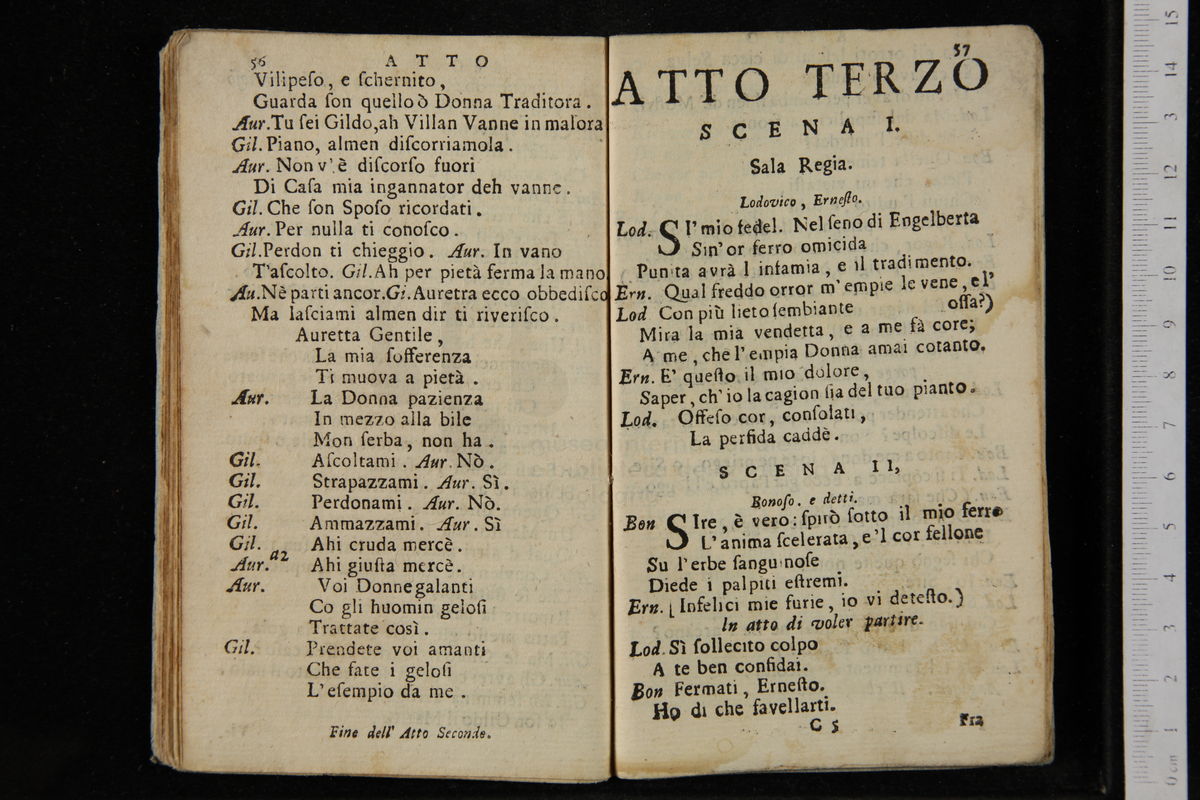 56 ATTO
Vilipeſo, e ſchernito,
Guarda ſon quello ò Donna Traditora.
Aur. Tu ſei Gildo, ah Villan Vanne in mal'ora
Gil. Piano, almen diſcorriamola.
Aur. Non v'è diſcorſo fuori
Di Caſa mia ingannator deh vanne.
Gil. Che ſon Spoſo ricordati.
Aur. Per nulla ti conoſco.
Gil. Perdon ti chieggio. Aur. In vano
T'aſcolto. Gil. Ah per pietà ferma la mano
Au. Nè parti ancor. Gi. Auretra ecco obbediſco
Ma laſciami almen dir ti riveriſco.
Auretta Gentile,
La mia ſofferenza
Ti muova a pietà.
Aur. La Donna pazienza
In mezzo alla bile
Mon ſerba, non ha.
Gil. Aſcoltami. Aur. Nò.
Gil. Strapazzami. Aur. Sì.
Gil. Perdonami. Aur. Nò.
Gil. Ammazzami. Aur. Sì
Gil. Ahi cruda mercè.
Aur. a2 Ahi giuſta mercè.
Aur. Voi Donne galanti
Co gli huomin geloſi
Trattate così.
Gil. Prendete voi amanti
Che fate i geloſi
L'eſempio da me.
Fine dell' Atto Secondo.
57
ATTO TERZO
SCENA I.
Sala Regia.
Lodovico, Erneſto.
Lod. SI' mio fedel. Nel ſeno di Engelberta
Sin' or ferro omicida
Punita avrà l infamia, e il tradimento.
Ern. Qual freddo orror m' empie le vene, e l'
oſſa?)
Lod Con più lieto ſembiante
Mira la mia vendetta, e a me fà core;
A me, che l'empia Donna amai cotanto.
Ern. E' queſto il mio dolore,
Saper, ch' io la cagion ſia del tuo pianto.
Lod. Offeſo cor, conſolati,
La perfida caddè.
SCENA II,
Bonoſo. e detti.
Bon SIre, è vero: ſpirò ſotto il mio ferro
L'anima ſcelerata, e'l cor fellone
Su l'erbe ſanguinoſe
Diede i palpiti eſtremi.
Ern. ( Infelici mie furie, io vi deteſto.)
In atto di voler partire.
Lod. Sì ſollecito colpo
A te ben confidai.
Bon Fermati, Erneſto.
Ho di che favellarti.
C 5 Fra